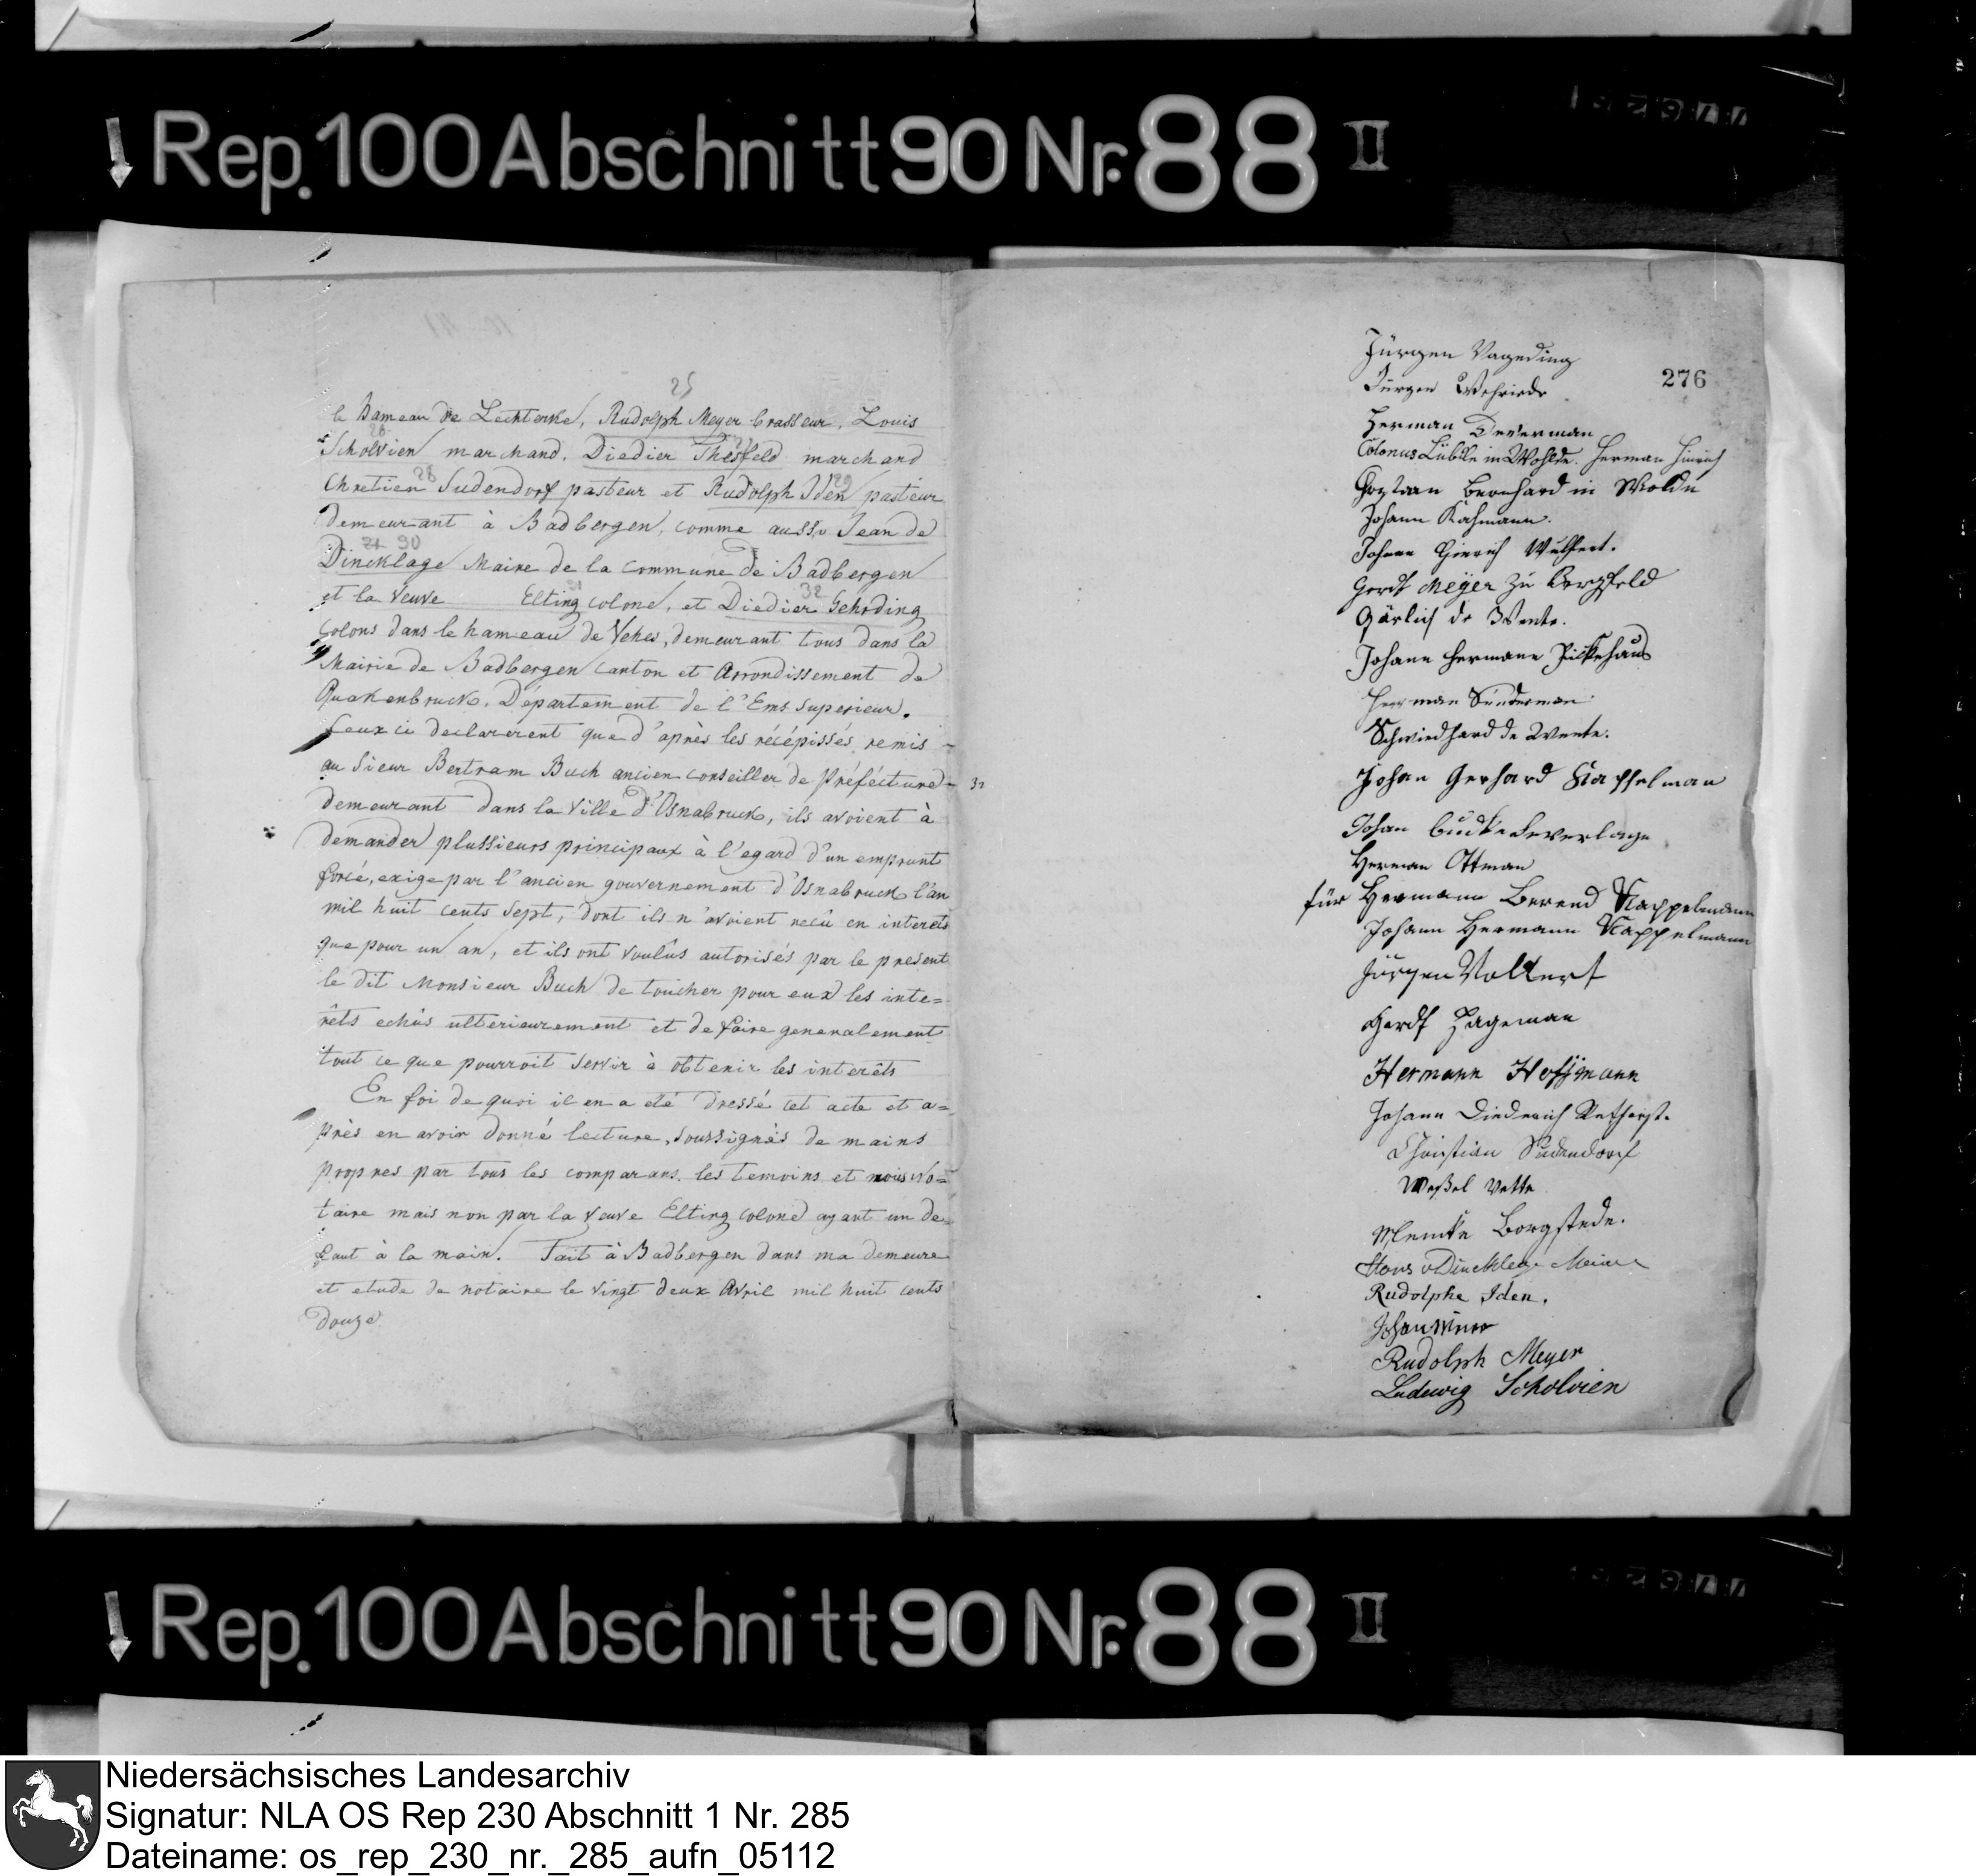 Rep. 100 Abschnitt 90 Nr. 88 II
25
le hameau de Lechterke, Rudolph Meyer brasseur, Louis
26
Scholvien marchand, Diedier Thesfeld marchand
28 29
Chretien Sudendorf pasteur et Rudolph Iden pasteur
demeurant à Badbergen, comme aussi Jean de
30
Dincklage Maire de la commune de Badbergen
32
et la veuve Elting colone, et Diedier Gehrding
colons dans le hameau de Vehes, demeurant tous dans la
Mairie de Badbergen canton et Arrondissement de
Quakenbruck, Département de l'Ems superieur.
Ceux ci declarerent que d'après les récépissés remis
au Sieur Bertram Buch ancien conseiller de préfecture
demeurant dans la ville d'Osnabruck, ils avoient à
demander plussieurs principaux à l'egard d'un emprunt
forcé, exige par l'ancien gouvernement d'Osnabruck l'an
mil huit cents sept, dont ils n'avoient reçû en interets
que pour un an, et ils ont voulûs autorisés par le present
le dit Monsieur Buch de toucher pour eux les inte=
rêts echûs ulterieurement et de faire generalement
tout ce que pourroit servir à obtenir les interêts
En foi de quoi il en a eté dressé cet acte et a=
près en avoir donné lecture, soussignés de mains
propres par tous les comparans, les temoins et nous No=
taire mais non par la veuve Elting colone ayant un de=
faut à la main. Fait à Badbergen dans ma demeure
et etude de notaire le vingt deux Avril mil huit cents
douze
276
Jürgen Vageding
Jürgen Wehriede
Herman Deverman
Colonus Lübke in Wohlde. Herman Hinrich
Bernhard in Wolde
Johann Kahmann.
Johann Hinrich Wulfert.
Gerdt Meÿer zu Bergfeld
Gärlich de Wente.
Johann Hermann
Herman Sunderman
Schwiedhard de Wente.
Johan Gerhard Kappelman
Johan Budke Leverlage
Herman Ottman
für Hermann Berend Kappelmann
Johann Hermann Kappelmann
Jürgen Volkert
Gerdt Hageman
Hermann Hoffmann
Johann Diederich
Christian Südendorf
Weßel Vette
Meinke Borgstede.
v Dincklage Maire
Rudolphe Iden.
Johan
Rudolph Meyer
Ludewig Scholvien
Rep. 100 Abschnitt 90 Nr. 88 II
Niedersächsisches Landesarchiv
Signatur: NLA OS Rep 230 Abschnitt 1 Nr. 285
Dateiname: os_rep_230_nr._285_aufn_05112